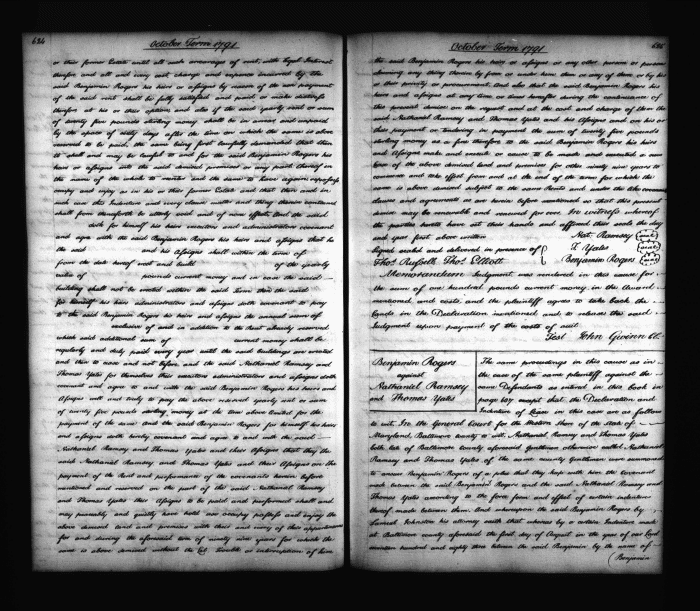 634
October Term 1791
or their former Estate until all such arrearages of rent, with legal Interest
thereon and all and every cost charge and expence incurred by the
said Benjamin Rogers his heirs or assigns by reason of the non payment
of the said rent shall be fully satisfied and paid or make distress
therefor at his or their option and also if the said yearly rent or sum
of twenty five pounds sterling money shall be in arrear and unpaid
by the space of sixty days after the time on which the same is above
reserved to be paid, the same being first lawfully demanded that then
it shall and may be lawful to and for the said Benjamin Rogers his
heirs or Assigns into the said demised premises or any part thereof in
the name of the whole to reenter and the same to have again repossess
occupy and enjoy as in his or their former Estate and that then and in
such case this Indenture and every clause matter and thing therein contained
shall from thenceforth be utterly void and of none effect. And the said
doth for himself his heirs executors and administrators covenant
and agree with the said Benjamin Rogers his heirs and assigns that he
the said and his Assigns shall within the term of
from the date hereof erect and build of the yearly
value of pounds current money and in case the said
building shall not be erected within the said term then the said
for himself his heirs administrators and assigns doth covenant to pay
to the said Benjamin Rogers his heirs and assigns the annual sum of
exclusive of and in addition to the Rent already reserved
which said additional sum of current money shall be
regularly and duly paid every year until the said buildings are erected
and then to cease and not before and the said Nathaniel Ramsey and
Thomas Yates for themselves their executors administrators and assigns doth
covenant and agree to and with the said Benjamin Rogers his heirs and
Assigns well and truly to pay the above reserved yearly rent or sum
of twenty five pounds sterling money at the time above limited for the
payment of the same and the said Benjamin Rogers for himself his heirs
and assigns doth hereby covenant and agree to and with the said
Nathaniel Ramsey and Thomas Yates and their Assigns that they the
said Nathaniel Ramsey and Thomas Yates and their Assigns on the
payment of the Rent and performance of the covenants herein before
mentioned and reserved on the part of the said Nathaniel Ramsey
and Thomas Yates their Assigns to be paid and performed shall and
may peaceably and quietly have hold use occupy possess and enjoy the
above demised land and premises with their and every of their appurtenances
for and during the aforesaid term of ninety nine years for which the
same is above demised without the Let trouble or interruption of him
October Term 1791
635
the said Benjamin Rogers his heirs or assigns or any other person or persons
claiming any thing therein by from or under him them or any of them or by his
or their privity or procurement. And also that the said Benjamin Rogers his
heirs and assigns at any time or times hereafter during the continuance of
this present demise on the request and at the cost and charge of them the
said Nathaniel Ramsey and Thomas Yates and his Assigns and on his or
their payment or tendering in payment the sum of twenty five pounds
sterling money as a fine therefor to the said Benjamin Rogers his heirs
and Assigns make and execute or cause to be made and executed a new
lease of the above demised land and premises for other ninety nine years to
commence and take effect from and at the end of the term for which the
same is above demised subject to the same Rents and under the like covenants
clauses and agreements as are herein before mentioned so that this present
demise may be renewable and renewed for ever. In witness whereof
the parties hereto have set their hands and affixed their seals the day
and year first above written Nat. Ramsey (seal)
Signed sealed and delivered in presence of T Yates (seal)
Thos. Russell. Thos. Elliott Benjamin Rogers (seal)
Memorandum Judgment was rendered in this cause for
the sum of one hundred pounds current money in the Award
mentioned, and costs, and the plaintiff agrees to take back the
Lands in the Declaration mentioned and to release the said
Judgment upon payment of the costs of suit
Test John Gwinn Clk
Benjamin Rogers
against
Nathaniel Ramsey
and Thomas Yates
The same proceedings in this cause as in
the case of the same plaintiff against the
same Defendants as entered in this book in
page 627 except that the Declaration and
Indenture of Lease in this case are as follows
to wit. In the General Court for the Western Shore of the State of
Maryland, Baltimore County to wit. Nathaniel Ramsey and Thomas Yates
both late of Baltimore County aforesaid Gentlemen otherwise called Nathaniel
Ramsey and Thomas Yates of the same County Gentlemen were summoned
to answer Benjamin Rogers of a plea that they keep with him the Covenant
made between the said Benjamin Rogers and the said Nathaniel Ramsey and
Thomas Yates according to the force form and effect of certain indenture
thereof made between them. And whereupon the said Benjamin Rogers by
Samuel Johnston his attorney saith that whereas by a certain Indenture made
at Baltimore County aforesaid the first day of August in the year of our Lord
seventeen hundred and eighty three between the said Benjamin by the name of
(Benjamin